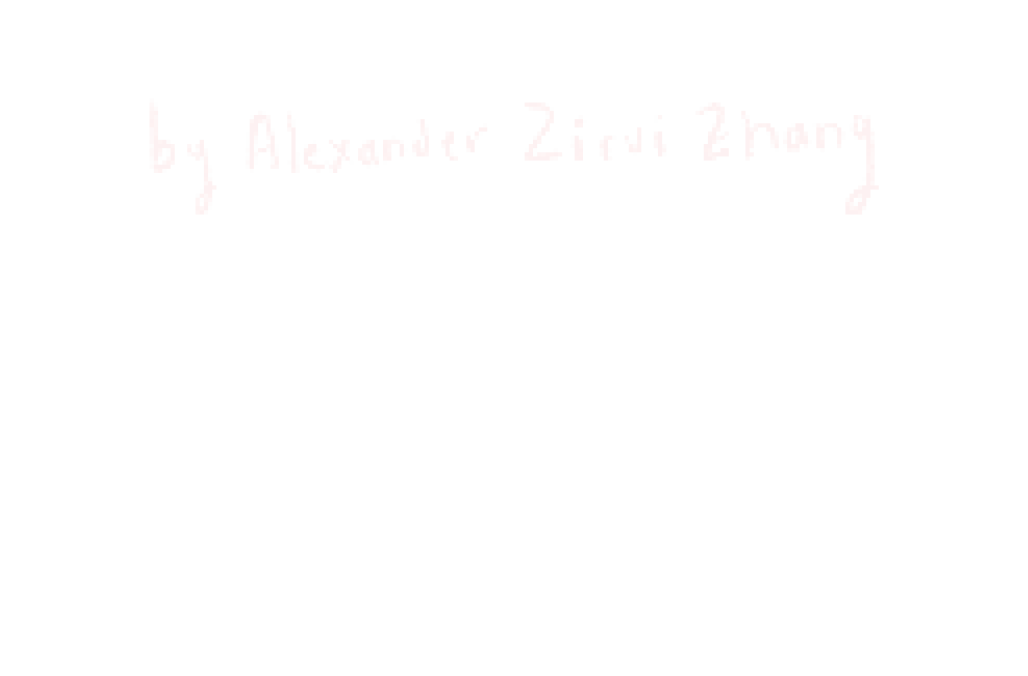 by Alexander Zirui Zhang